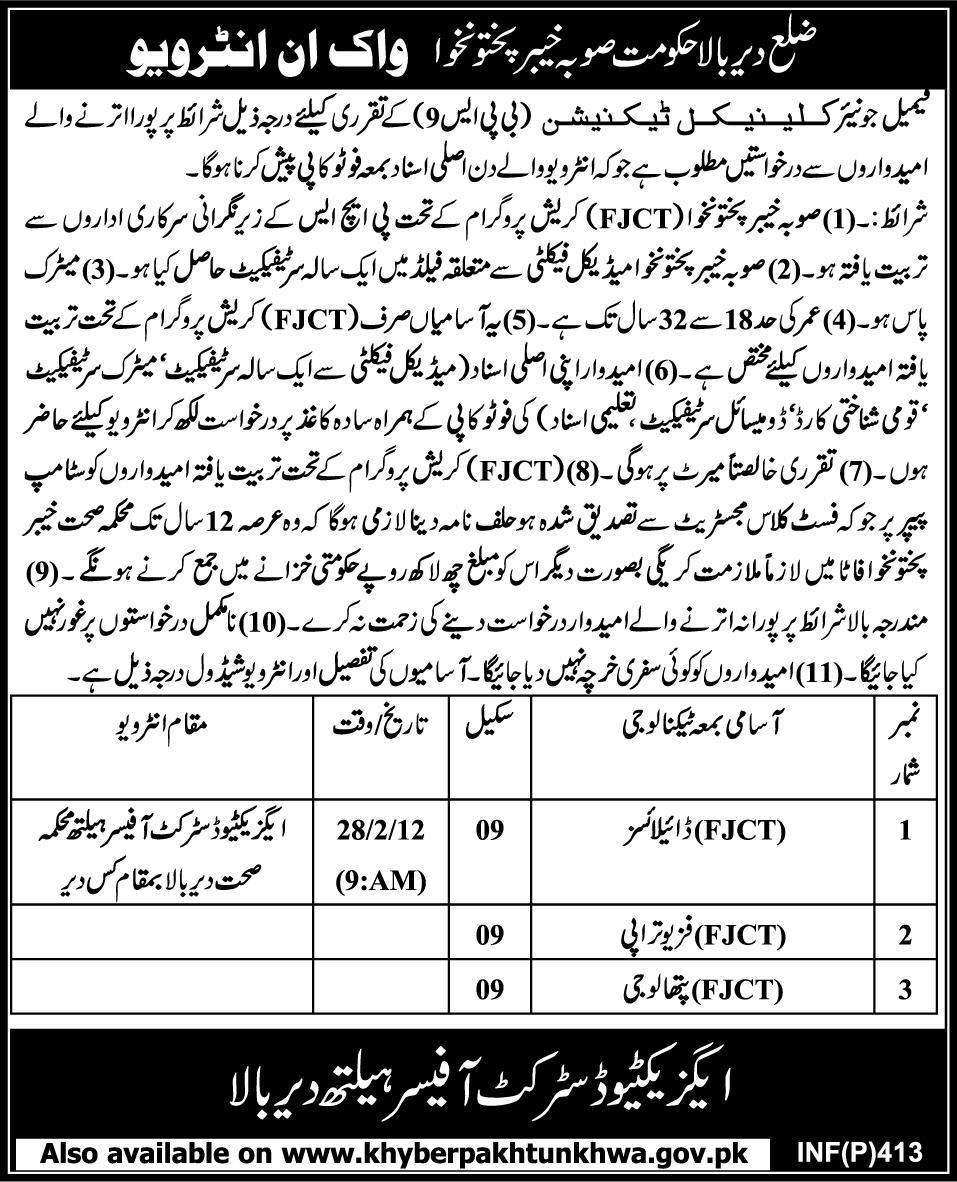 ضلع دیر بالا حکومت صوبہ خیبر پختونخوا واک ان انٹرویو
فیمیل جونیئر کلینیکل ٹیکنیشن (بی پی ایس 9) کے تقرری کیلئے درجہ ذیل شرائط پر پورا اترنے والے
امیدواروں سے درخواستیں مطلوب ہے جو کہ انٹرویو والے دن اصلی اسناد بمعہ فوٹو کاپی پیش کرنا ہوگا۔
شرائط:۔(1) صوبہ خیبر پختونخوا (FJCT) کریش پروگرام کے تحت پی ایچ ایس کے زیر نگرانی سرکاری اداروں سے
تربیت یافتہ ہو۔(2) صوبہ خیبر پختونخوا میڈیکل فیکلٹی سے متعلقہ فیلڈ میں ایک سالہ سرٹیفیکیٹ حاصل کیا ہو۔(3) میٹرک
پاس ہو۔(4) عمر کی حد 18 سے 32 سال تک ہے۔(5) یہ آسامیاں صرف (FJCT) کریش پروگرام کے تحت تربیت
یافتہ امیدواروں کیلئے مختص ہے۔(6) امیدوار اپنی اصلی اسناد (میڈیکل فیکلٹی سے ایک سالہ سرٹیفیکیٹ‘ میٹرک سرٹیفیکیٹ
‘قومی شناختی کارڈ‘ ڈومیسائل سرٹیفیکیٹ، تعلیمی اسناد) کی فوٹو کاپی کے ہمراہ سادہ کاغذ پر درخواست لکھ کر انٹرویو کیلئے حاضر
ہوں۔(7) تقرری خالصتاً میرٹ پر ہوگی۔(8) (FJCT) کریش پروگرام کے تحت تربیت یافتہ امیدواروں کو سٹامپ
پیپر پر جو کہ فسٹ کلاس مجسٹریٹ سے تصدیق شدہ ہو حلف نامہ دینا لازمی ہوگا کہ وہ عرصہ 12 سال تک محکمہ صحت خیبر
پختونخوا فاٹا میں لازماً ملازمت کریگی بصورت دیگر اس کو مبلغ چھ لاکھ روپے حکومتی خزانے میں جمع کرنے ہونگے۔(9)
مندرجہ بالا شرائط پر پورا نہ اترنے والے امیدوار درخواست دینے کی زحمت نہ کرے۔(10) نامکمل درخواستوں پر غور نہیں
کیا جائیگا۔(11) امیدواروں کو کوئی سفری خرچہ نہیں دیا جائیگا۔ آسامیوں کی تفصیل اور انٹرویو شیڈول درجہ ذیل ہے۔
نمبر شمار آسامی بمعہ ٹیکنالوجی سکیل تاریخ/وقت مقام انٹرویو
1 (FJCT) ڈائیلائسز 09 28/2/12 (9:AM) ایگزیکٹیو ڈسٹرکٹ آفیسر ہیلتھ محکمہ صحت دیر بالا بمقام کس دیر
2 (FJCT) فزیوتراپی 09
3 (FJCT) پتھالوجی 09
ایگزیکٹیو ڈسٹرکٹ آفیسر ہیلتھ دیر بالا
Also available on www.khyberpakhtunkhwa.gov.pk INF(P)413